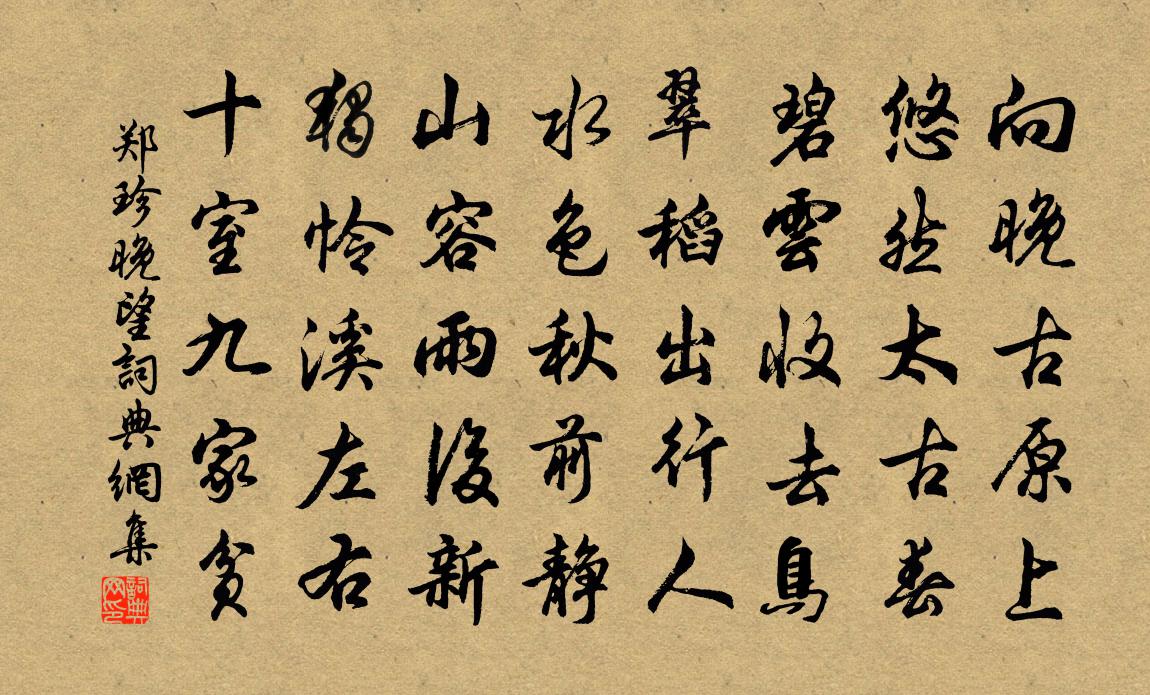 向晚古原上
悠然太古春
碧雲收去鳥
翠稻出行人
水色秋前静
山容雨後新
獨怜溪左右
十室九家貧
郑珍晚望詞典網集
詞典网印